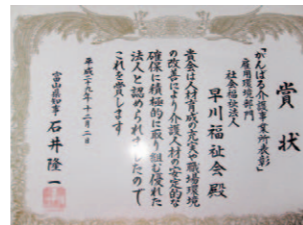 賞状
「がんばる介護事業所表彰」
雇用環境部門
社会福祉法人
早川福祉会殿
貴会は人材育成の充実や職場環境
の改善により介護人材の安定的な
確保に積極的に取り組む優れた
法人と認められましたので
これを賞します
平成二十九年十二月二日
富山県知事 石井隆一